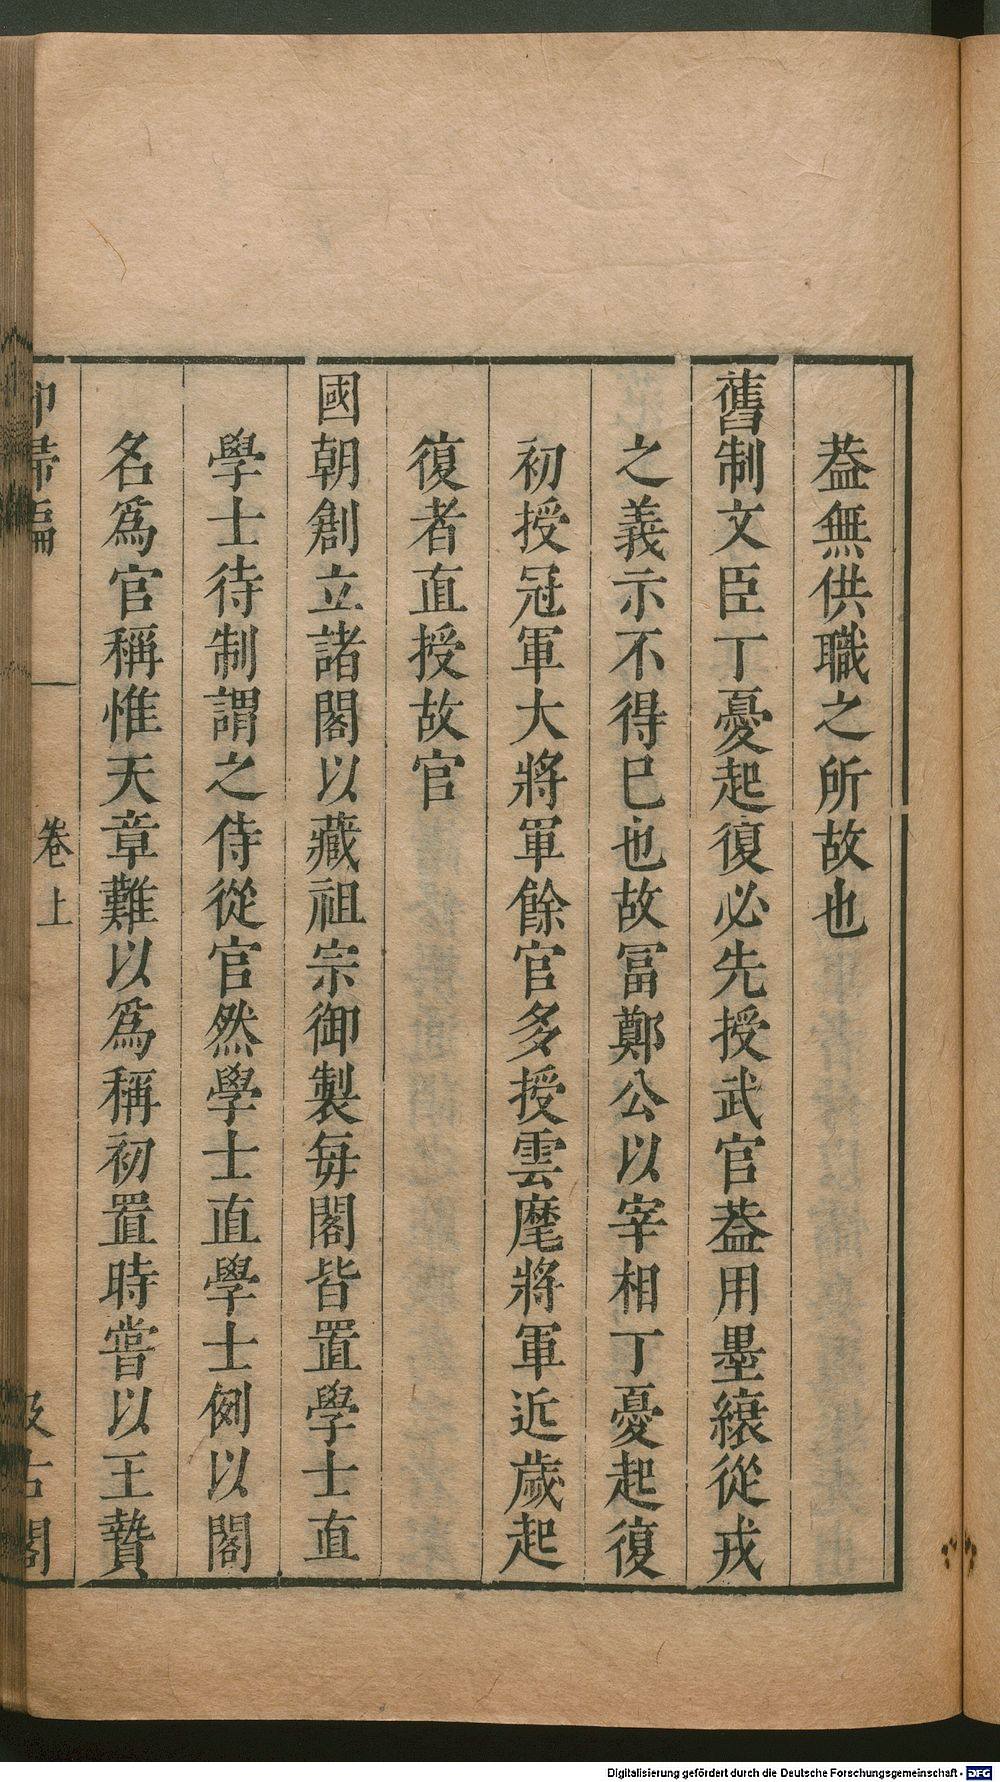 葢無供職之所故也
舊制文臣丁憂起復必先授武官葢用墨縗從戎
之義示不得巳也故冨鄭公以宰相丁憂起復
初授冠軍大將軍餘官多授雲麾將軍近歲起
復者直授故官
國朝創立諸閣以藏祖宗御製每閣皆置學士直
學士待制謂之侍從官然學士直學士例以閣
名爲官稱惟天章難以爲稱初置時嘗以王贄
卷上
古閣
Digitalisierung gefördert durch die Deutsche Forschungsgemeinschaft - DFG